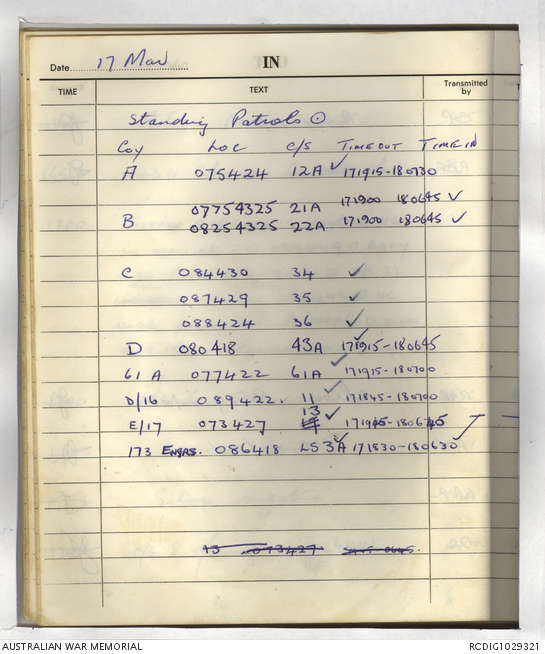 Date 17 Mar IN
TIME TEXT Transmitted by
Standing Patrols ⊙
Coy LOC C/S TIME OUT TIME IN
A 075424 12A ✓ 171915-180730
07754325 21A 171900 180645 ✓
B 08254325 22A 171900 180645 ✓
C 084430 34 ✓
087429 35 ✓
088424 36 ✓
D 080418 43A ✓ 171915-180645
61 A 077422 61A ✓ 171915-180700
D/16 089422. 11 ✓ 171845-180700
E/17 073427 13 ✓
173 ENGRS. 086418 LS3A ✓ 171830-180630 ✓
13 073427
AUSTRALIAN WAR MEMORIAL RCDIG1029321